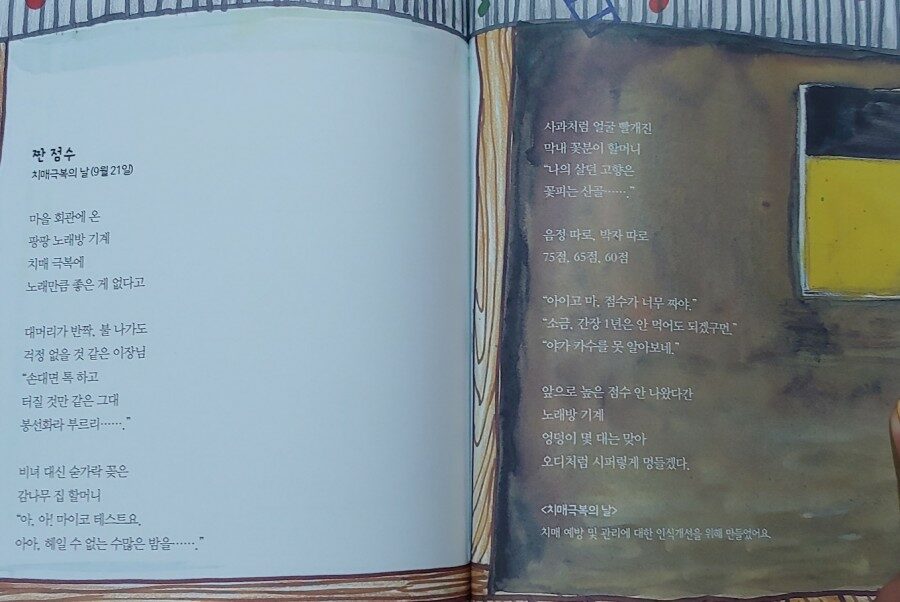 짠 점수
치매극복의 날(9월 21일)
마을 회관에 온
팡팡 노래방 기계
치매 극복에
노래만큼 좋은 게 없다고
대머리가 반짝, 불 나가도
걱정 없을 것 같은 이장님
“손대면 톡 하고
터질 것만 같은 그대
봉선화라 부르리…….”
비녀 대신 숟가락 꽂은
감나무 집 할머니
“아, 아! 마이코 테스트요.
아아, 헤일 수 없는 수많은 밤을…….”
사과처럼 얼굴 빨개진
막내 꽃분이 할머니
“나의 살던 고향은
꽃피는 산골…….”
음정 따로, 박자 따로
75점, 65점, 60점
“아이고 마, 점수가 너무 짜야.”
“소금, 간장 1년은 안 먹어도 되겠구먼.”
“야가 카수를 못 알아보네.”
앞으로 높은 점수 안 나왔다간
노래방 기계
엉덩이 몇 대는 맞아
오디처럼 시퍼렇게 멍들겠다.
<치매극복의 날>
치매 예방 및 관리에 대한 인식개선을 위해 만들었어요.